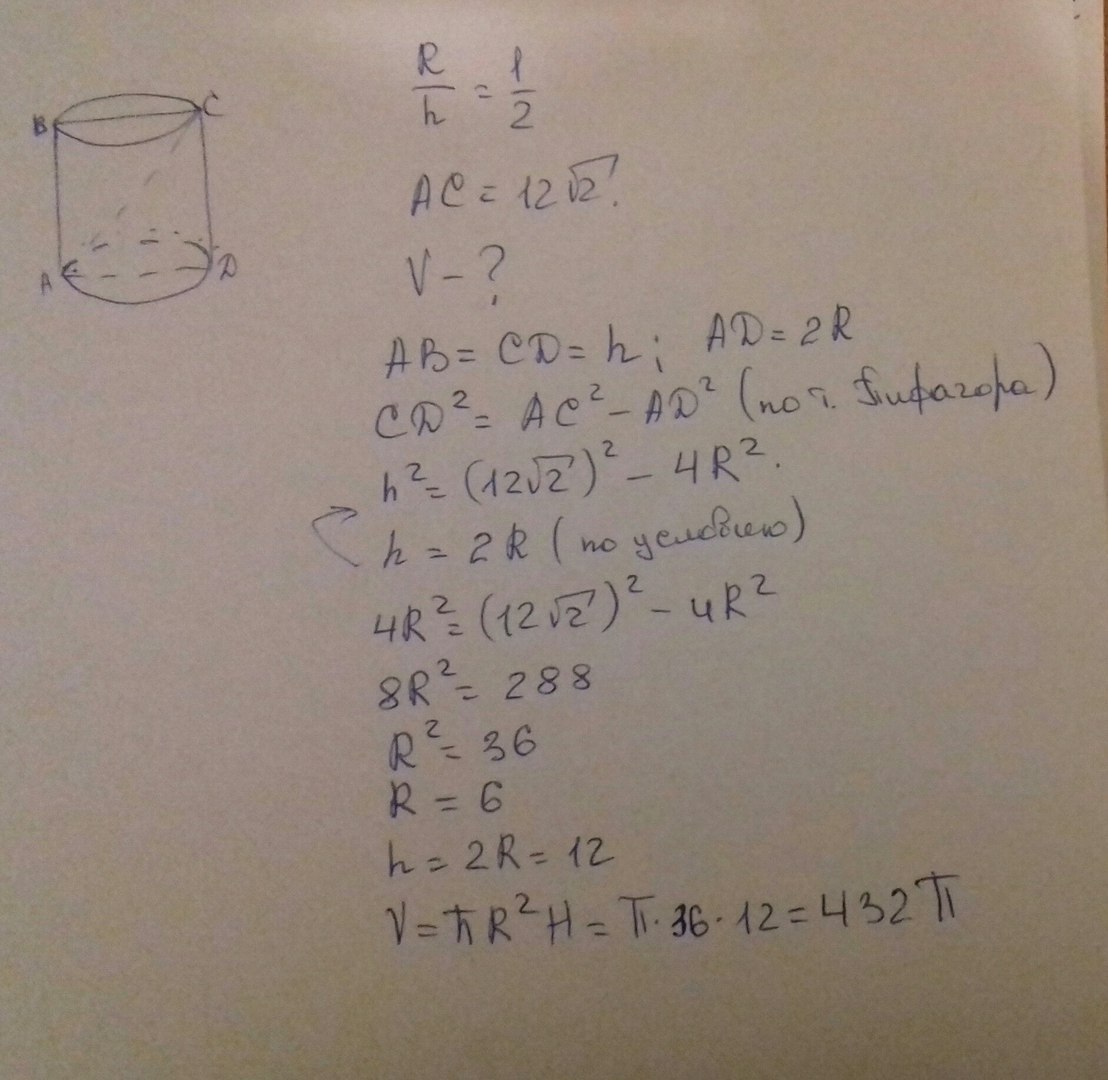 B
C
A
D
R/h = 1/2
AC = 12√2.
V - ?
AB = CD = h; AD = 2R
CD² = AC² - AD² (по т. Пифагора)
h² = (12√2)² - 4R².
h = 2R (по условию)
4R² = (12√2)² - 4R²
8R² = 288
R² = 36
R = 6
h = 2R = 12
V = πR²H = π·36·12 = 432π